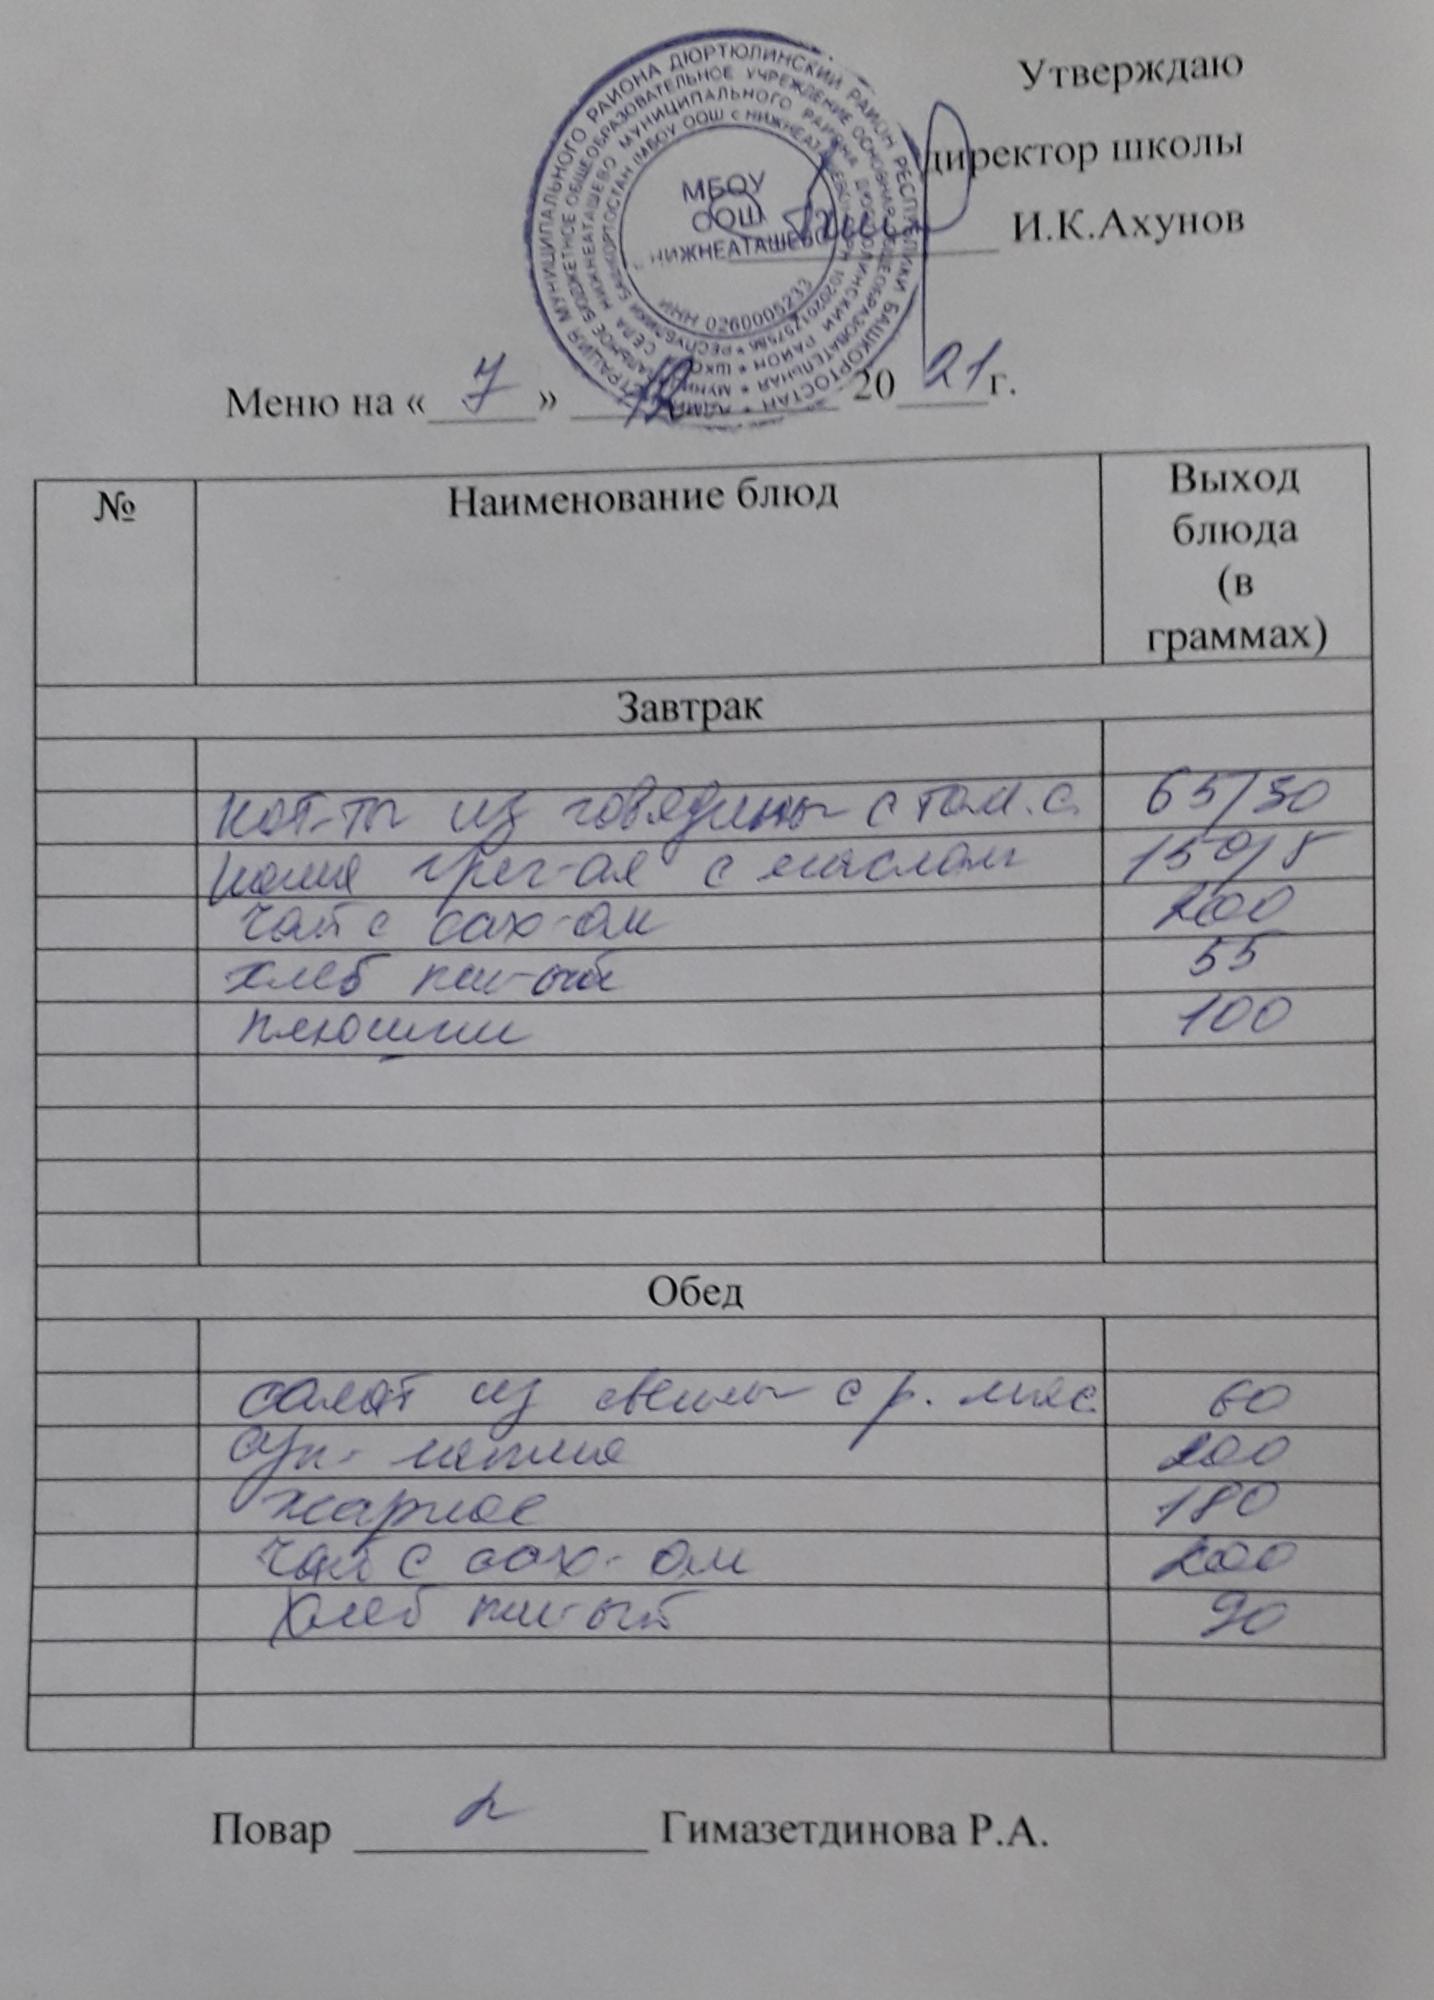 Утверждаю
директор школы
И.К.Ахунов
МБОУ
ООШ
с НИЖНЕАТАШЕВО
ИНН 0260005233
Меню на «7» 12 2021г.
№ Наименование блюд Выход блюда (в граммах)
Завтрак
кот-ты из говядины с том.с. 65/50
каша греч-ая с маслом 150/5
чай с сах-ом 200
хлеб пш-ый 55
плюшки 100
Обед
салат из свеклы с р. мас. 60
суп- лапша 200
жаркое 180
чай с сах-ом 200
хлеб пш-ый 90
Повар Гимазетдинова Р.А.